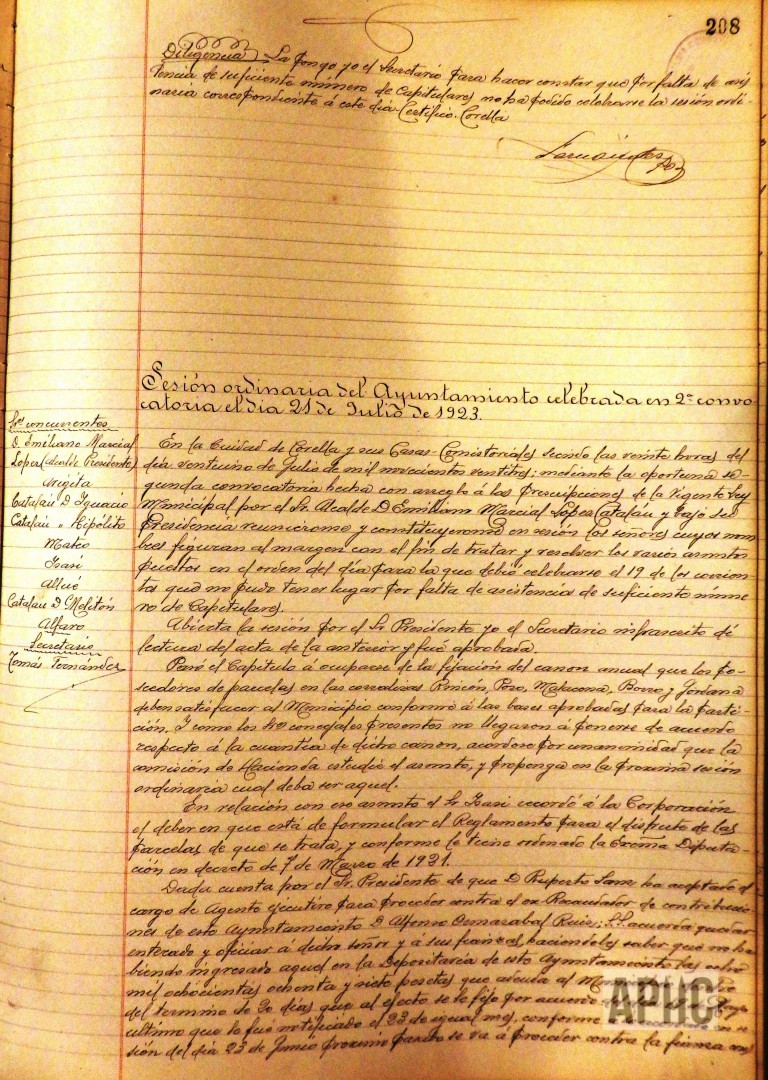 208
Diligencia La pongo yo el Secretario para hacer constar que por falta de asis
tencia de suficiente número de Capitulares no ha podido celebrarse la sesión ordi-
naria correspondiente á este día. Certifico. Corella
Sesión ordinaria del Ayuntamiento celebrada en 2ª convo-
catoria el día 21 de Julio de 1923.
Sres concurrentes
D. Emiliano Marcial
Lopez (Alcalde Presidente)
Catalan D Ignacio
Catalan " Hipólito
Mateo
Isasi
Allué
Catalan D Melitón
Alfaro
Secretario
Tomás Fernández
En la Ciudad de Corella y sus Casas-Comistoriales siendo las veinte horas del
día ventiuno de Julio de mil novecientos ventitres; mediante la oportuna se-
gunda convocatoria hecha con arreglo á las prescripciones de la vigente Ley
Municipal por el Sr. Alcalde D. Emiliano Marcial Lopez Catalan y bajo su
Presidencia reunieronse y constituyeronse en sesión los señores cuyos nom
bres figuran al margen con el fin de tratar y resolver los varios asuntos
puestos en el orden del día para la que debió celebrarse el 19 de los corrien-
tes que no pudo tener lugar por falta de asistencia de suficiente núme
ro de Capitulares.
Abierta la sesión por el Sr. Presidente yo el Secretario infrascrito dí
lectura del acta de la anterior y fué aprobada.
Pasó el Capitulo á ocuparse de la fijación del canon anual que los po-
seedores de parcelas en las corralizas Rincón, Pozo, Matacona, Borro y Jordana
deben satisfacer al Municipio conforme á las bases aprobadas para la parti-
ción. Y como los Sres concejales presentes no llegaron á ponerse de acuerdo
respecto á la cuantía de dicho canon, acordose por unanimidad que la
comisión de Hacienda estudie el asunto, y proponga en la proxima sesión
ordinaria cual deba ser aquel.
En relación con ese asunto el Sr Isasi recordó á la Corporación
el deber en que está de formular el Reglamento para el disfrute de las
parcelas de que se trata, y conforme le tiene ordenado la Excma Diputa-
ción en decreto de 7 de Marzo de 1921.
Dada cuenta por el Sr. Presidente de que D Ruperto Sanz ha aceptado el
cargo de Agente ejecutivo para proceder contra el ex Recaudador de contribucio-
nes de este Ayuntamiento D Alfonso Ruiz; S.S. acuerda quedar
enterado y oficiar á dicho señor y á sus haciendoles saber que no ha
biendo ingresado aquel en la Depositaria de este Ayuntamiento las ocho
mil ochocientas ochenta y siete pesetas que adeuda al
del termino de 20 días que al efecto se le fijó por acuerdo
ultimo que le fué notificado el 23 de igual mes, conforme
sión del día 23 de Junio proximo pasado se va á proceder contra la fianza
APHC